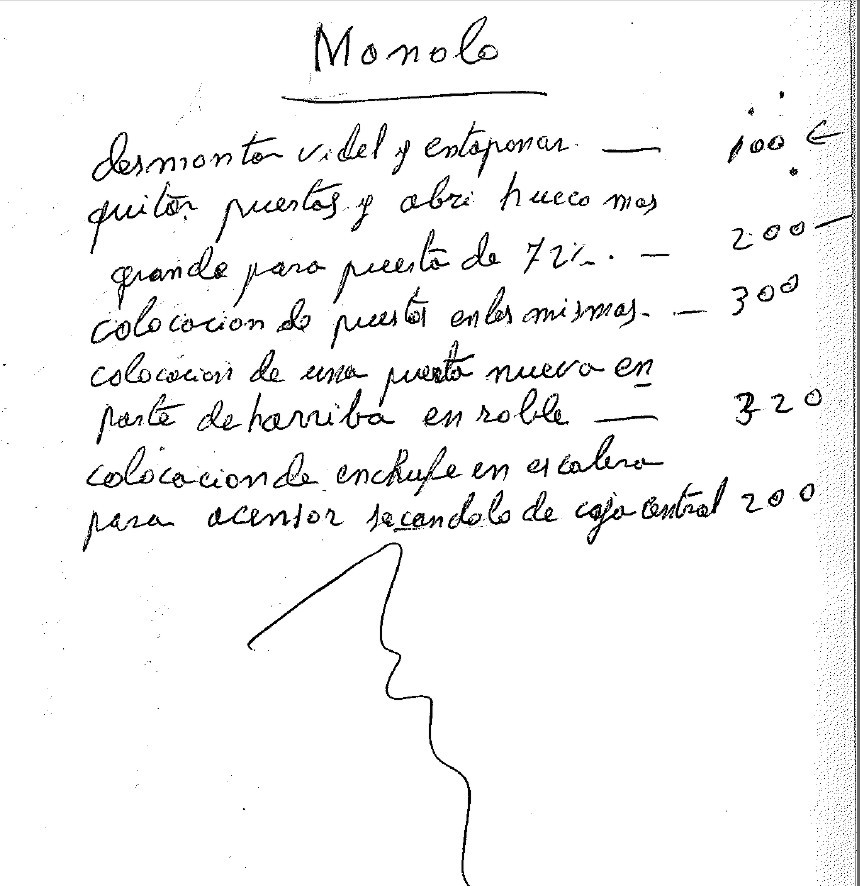 Monolo
desmontar videl y entaponar. — 100 ←
quitar puertas y abri hueco mas
grande para puerta de 72%. — 200 —
colocacion de puertas en las mismas. — 300
colocacion de una puerta nueva en
parte deharriba en roble — 320
colocacion de enchufe en escalera
para acensor sacandolo de caja central 200